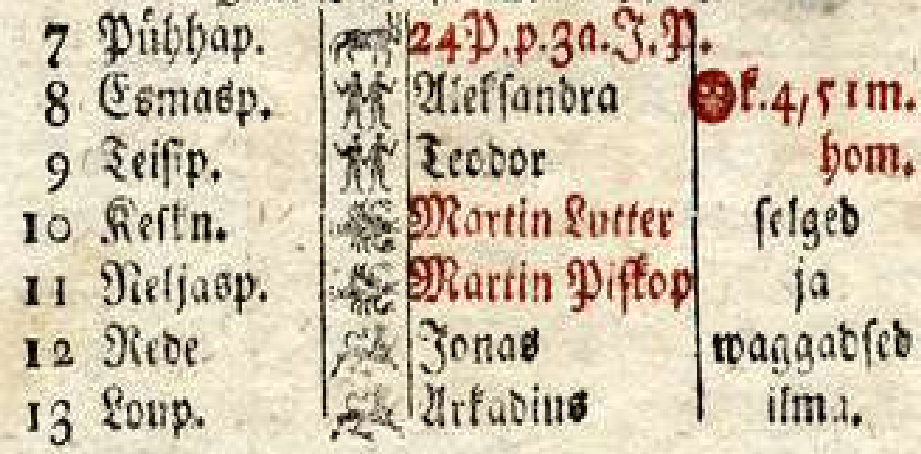 7 Pühhap. 24 P. p. 3a. J. P.
8 Esmasp. Aleksandra k. 4, 51 m.
9 Teisip. Teodor hom.
10 Keskn. Martin Lutter selged
11 Neljasp. Martin Piskop ja
12 Rede Jonas waggadsed
13 Loup. Arkadius ilma.